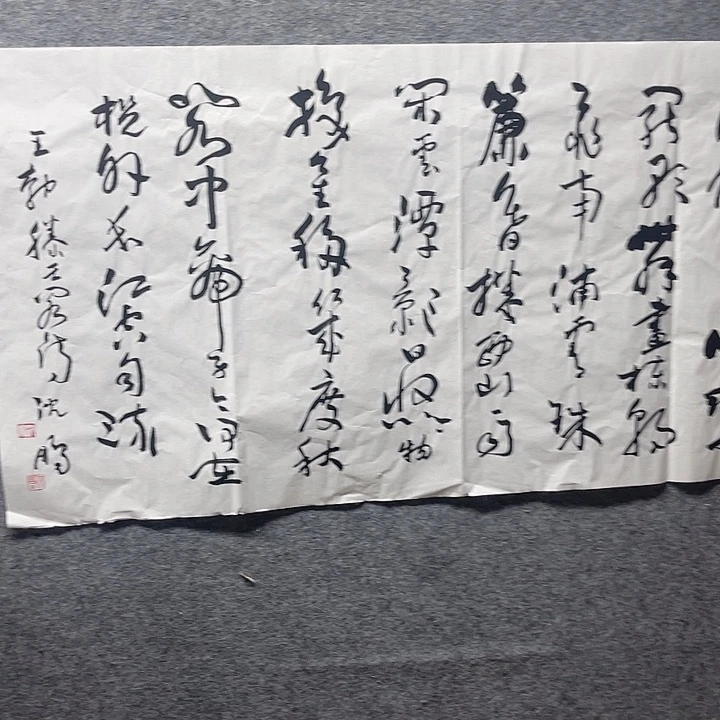 罷歌舞畫棟朝
飛南浦雲珠
簾暮捲西山雨
閒雲潭影日悠悠物
換星移幾度秋
閣中帝子今何在
檻外長江空自流
王勃滕王閣詩 沈鵬